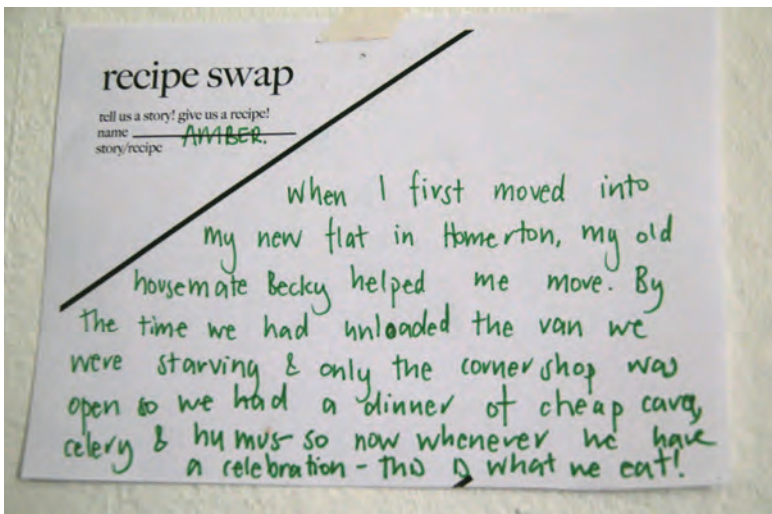 recipe swap
tell us a story! give us a recipe!
name AMBER.
story/recipe
When I first moved into
my new flat in Homerton, my old
housemate Becky helped me move. By
the time we had unloaded the van we
were starving & only the corner shop was
open so we had a dinner of cheap cava,
celery & humus so now whenever we have
a celebration - this is what we eat!